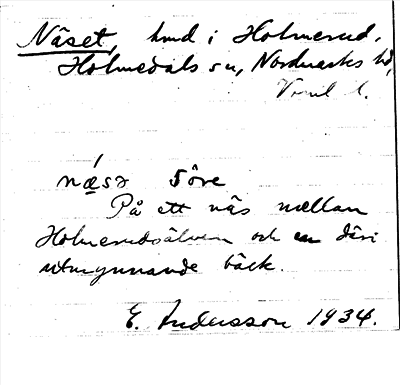 Näset, hmd i Holmerud,
Holmedals sn, Nordmarks hd,
Vrml l.
nǽsə 5öre
På ett näs mellan
Holmerudsälven och en däri
utmynnande bäck.
E. Andersson 1934.